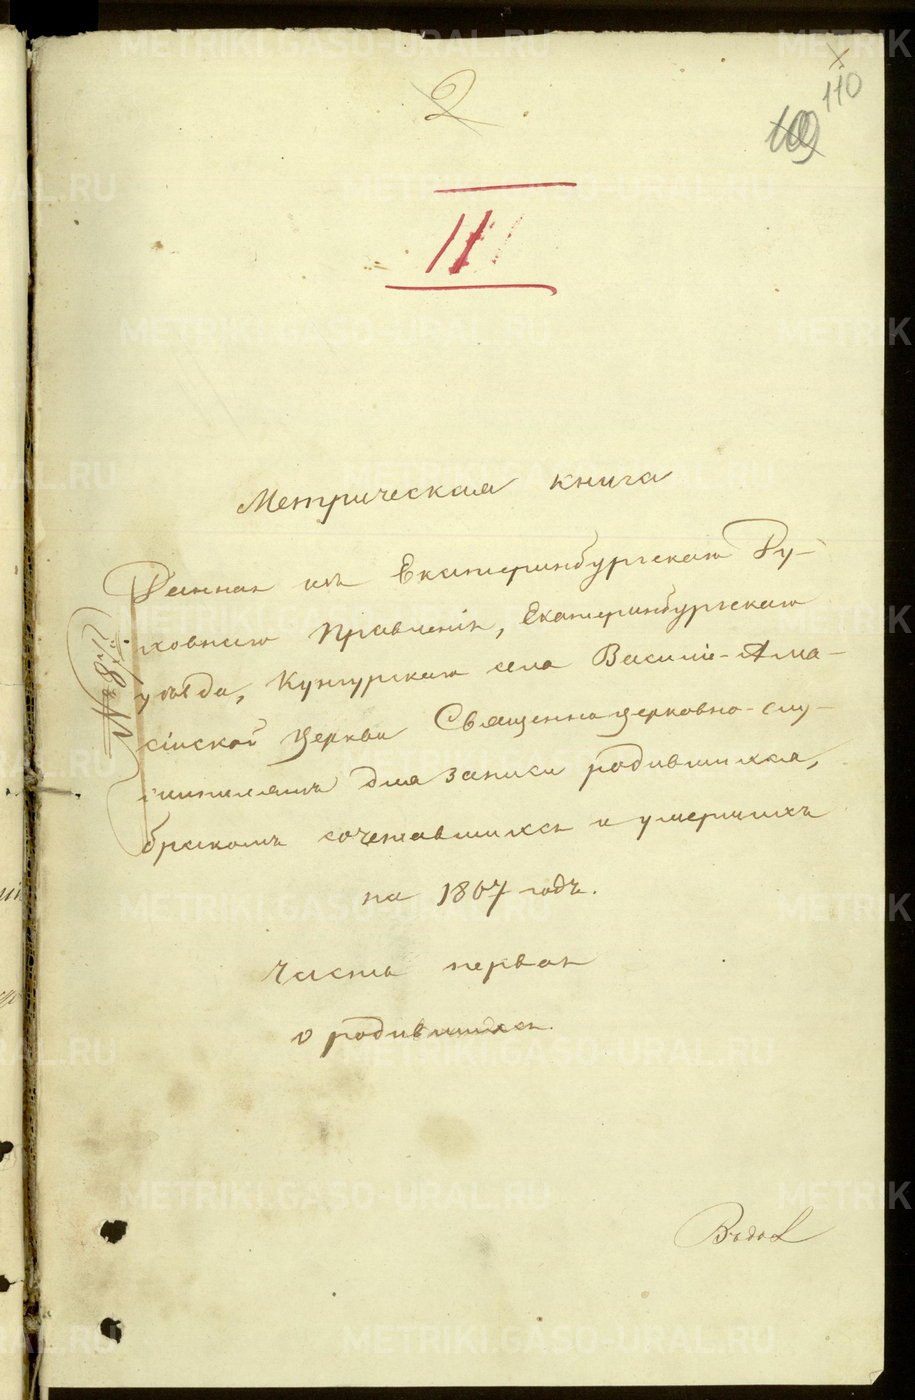 2
110
109
III
Метрическая книга
Данная изъ Екатеринбургскаго Ду-
ховнаго Правленія, Екатеринбургскаго
уѣзда, Кунгурскаго села Василіе-Ама-
сійской Церкви Священноцерковно-слу-
жителямъ для записи родившихся,
бракомъ сочетавшихся и умершихъ
на 1867 годъ.
Часть первая
о родившихся.
METRIKI.GASO-URAL.RU